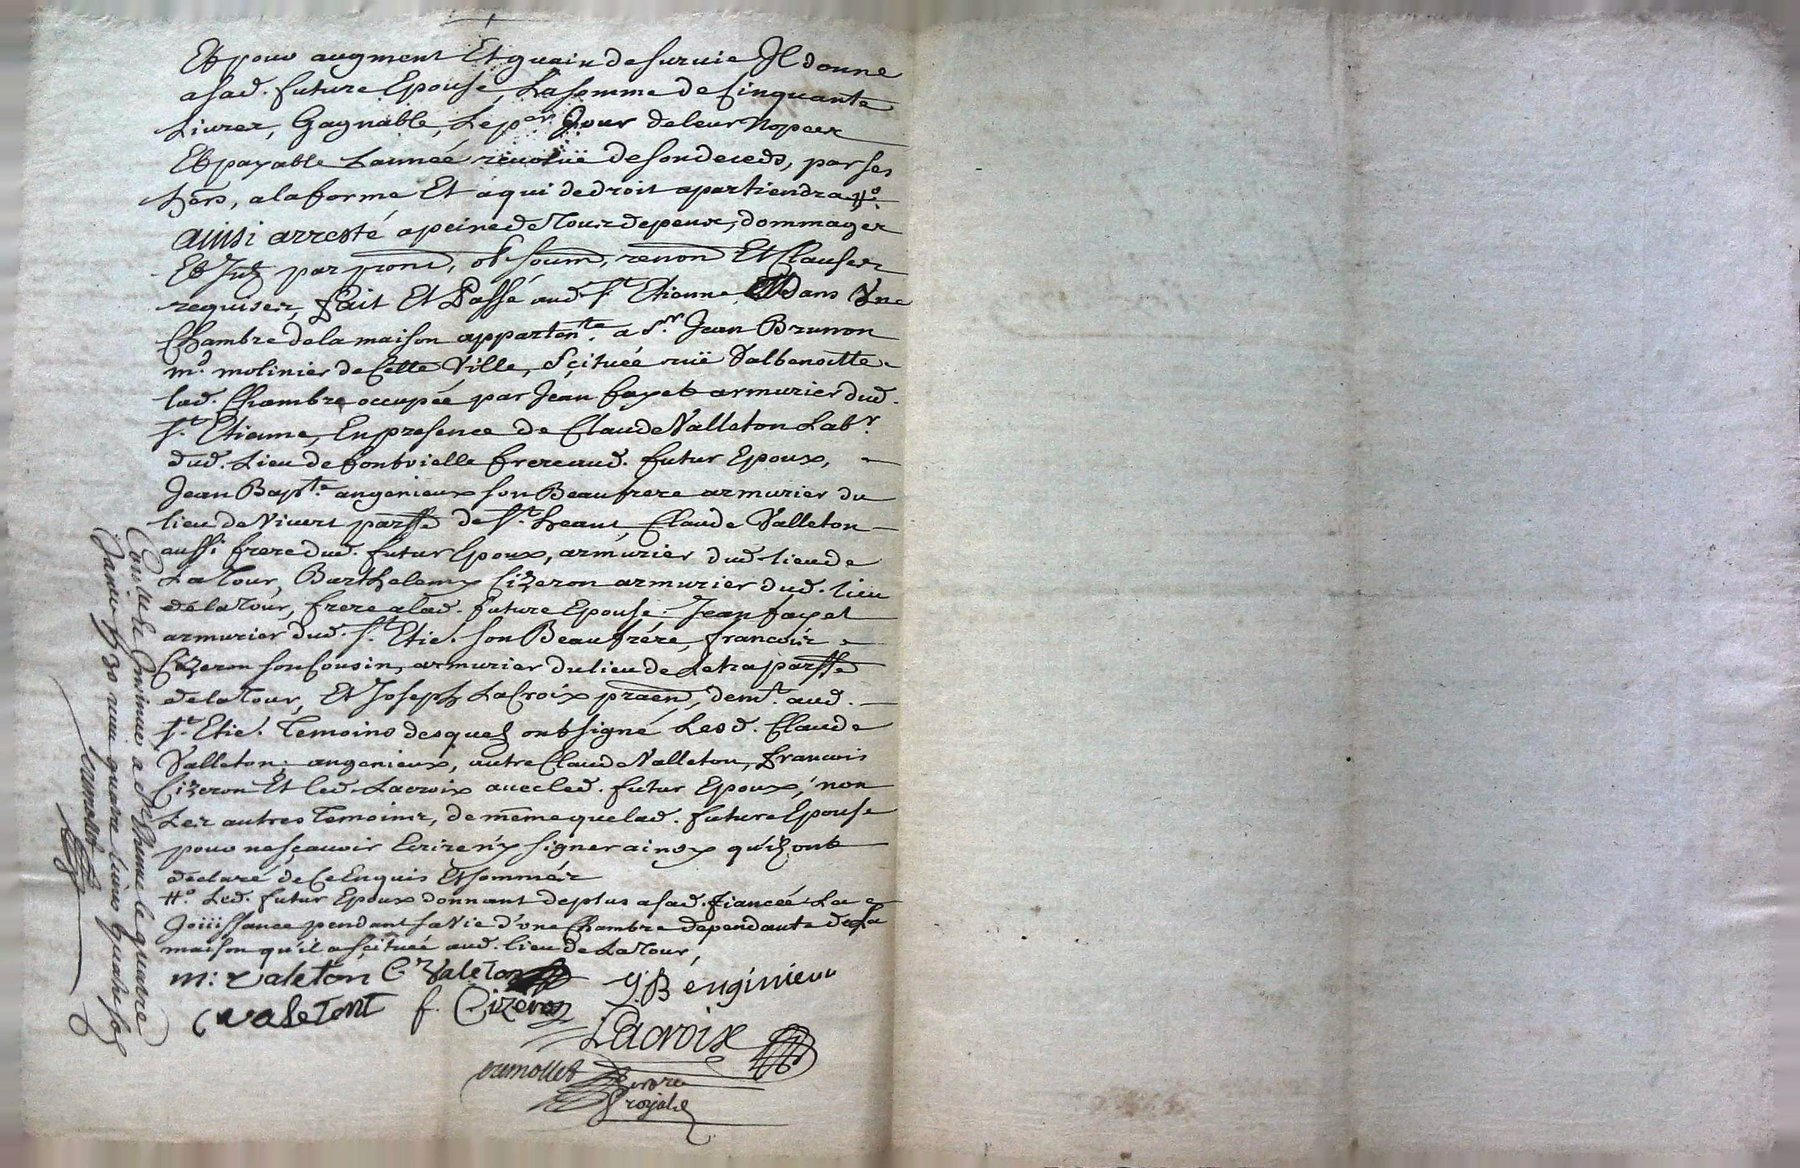 Et pour augment Et guain de survie Il donne
a sad. future Epouse, La somme de Cinquante
Livres, Gagnable, Le per. Jour de leur Nopces
Et payable Lannéé revoluë de son deceds, par ses
hers, a la forme Et a qui de droit apartiendra #o.
ainsi arresté a peine de tous depens, dommages
Et Int par prom, ob soum, renon Et Clauses
requises, fait Et Passé aud. St Etienne, Dans Une
Chambre de la maison apparten.te a Sr. Jean Brunon
md. molinier de Cette Ville, Scituéé ruë Valbenoitte
lad. Chambre occupéé par Jean fayet armurier dud.
St. Etienne, En presence de Claude Valleton Labr.
dud. Lieu de fontvielle frere aud. futur Epoux,
Jean Bapte. angenieux son Beaufrere armurier du
lieu de Vivert parsse de St. heant Claude Valleton
aussi frere dud. futur Epoux, armurier dud. lieu de
La Tour, Barthelemy Cizeron armurier dud. lieu
de la Tour, frere a lad. future Epouse. Jean fayet
armurier dud. St. Etie. son Beaufrére, francois
Cizeron son Cousin, armurier du lieu de Letra parsse
de la Tour, Et Joseph LaCroix praen, demt. aud.
St. Etie. Temoins desquels ont signé Lesd. Claude
Valleton. angenieux, autre Claude Valleton, francois
Cizeron Et led. Lacroix avec led. futur Epoux, non
Les autres Temoins, de même que lad. future Epouse
pour ne sçavoir Ecrire ny signer ainsy qu'ils ont
déclaré de Ce Enquis Et sommés
#o. Led. futur Epoux donnant de plus a sad. fiancéé La
Joüissance pendant sa Vie d'une Chambre dependante de La
maison qu'il a scituéé aud. lieu de La Tour,
m: valeton C Valeton J.B enginieu
C valetont f. Cizeron
Lacroix
cremollet
nore
royal
Con.lé à St Etienne le quatre
Janvier 1730 quatre Livres quatre so
cremollet